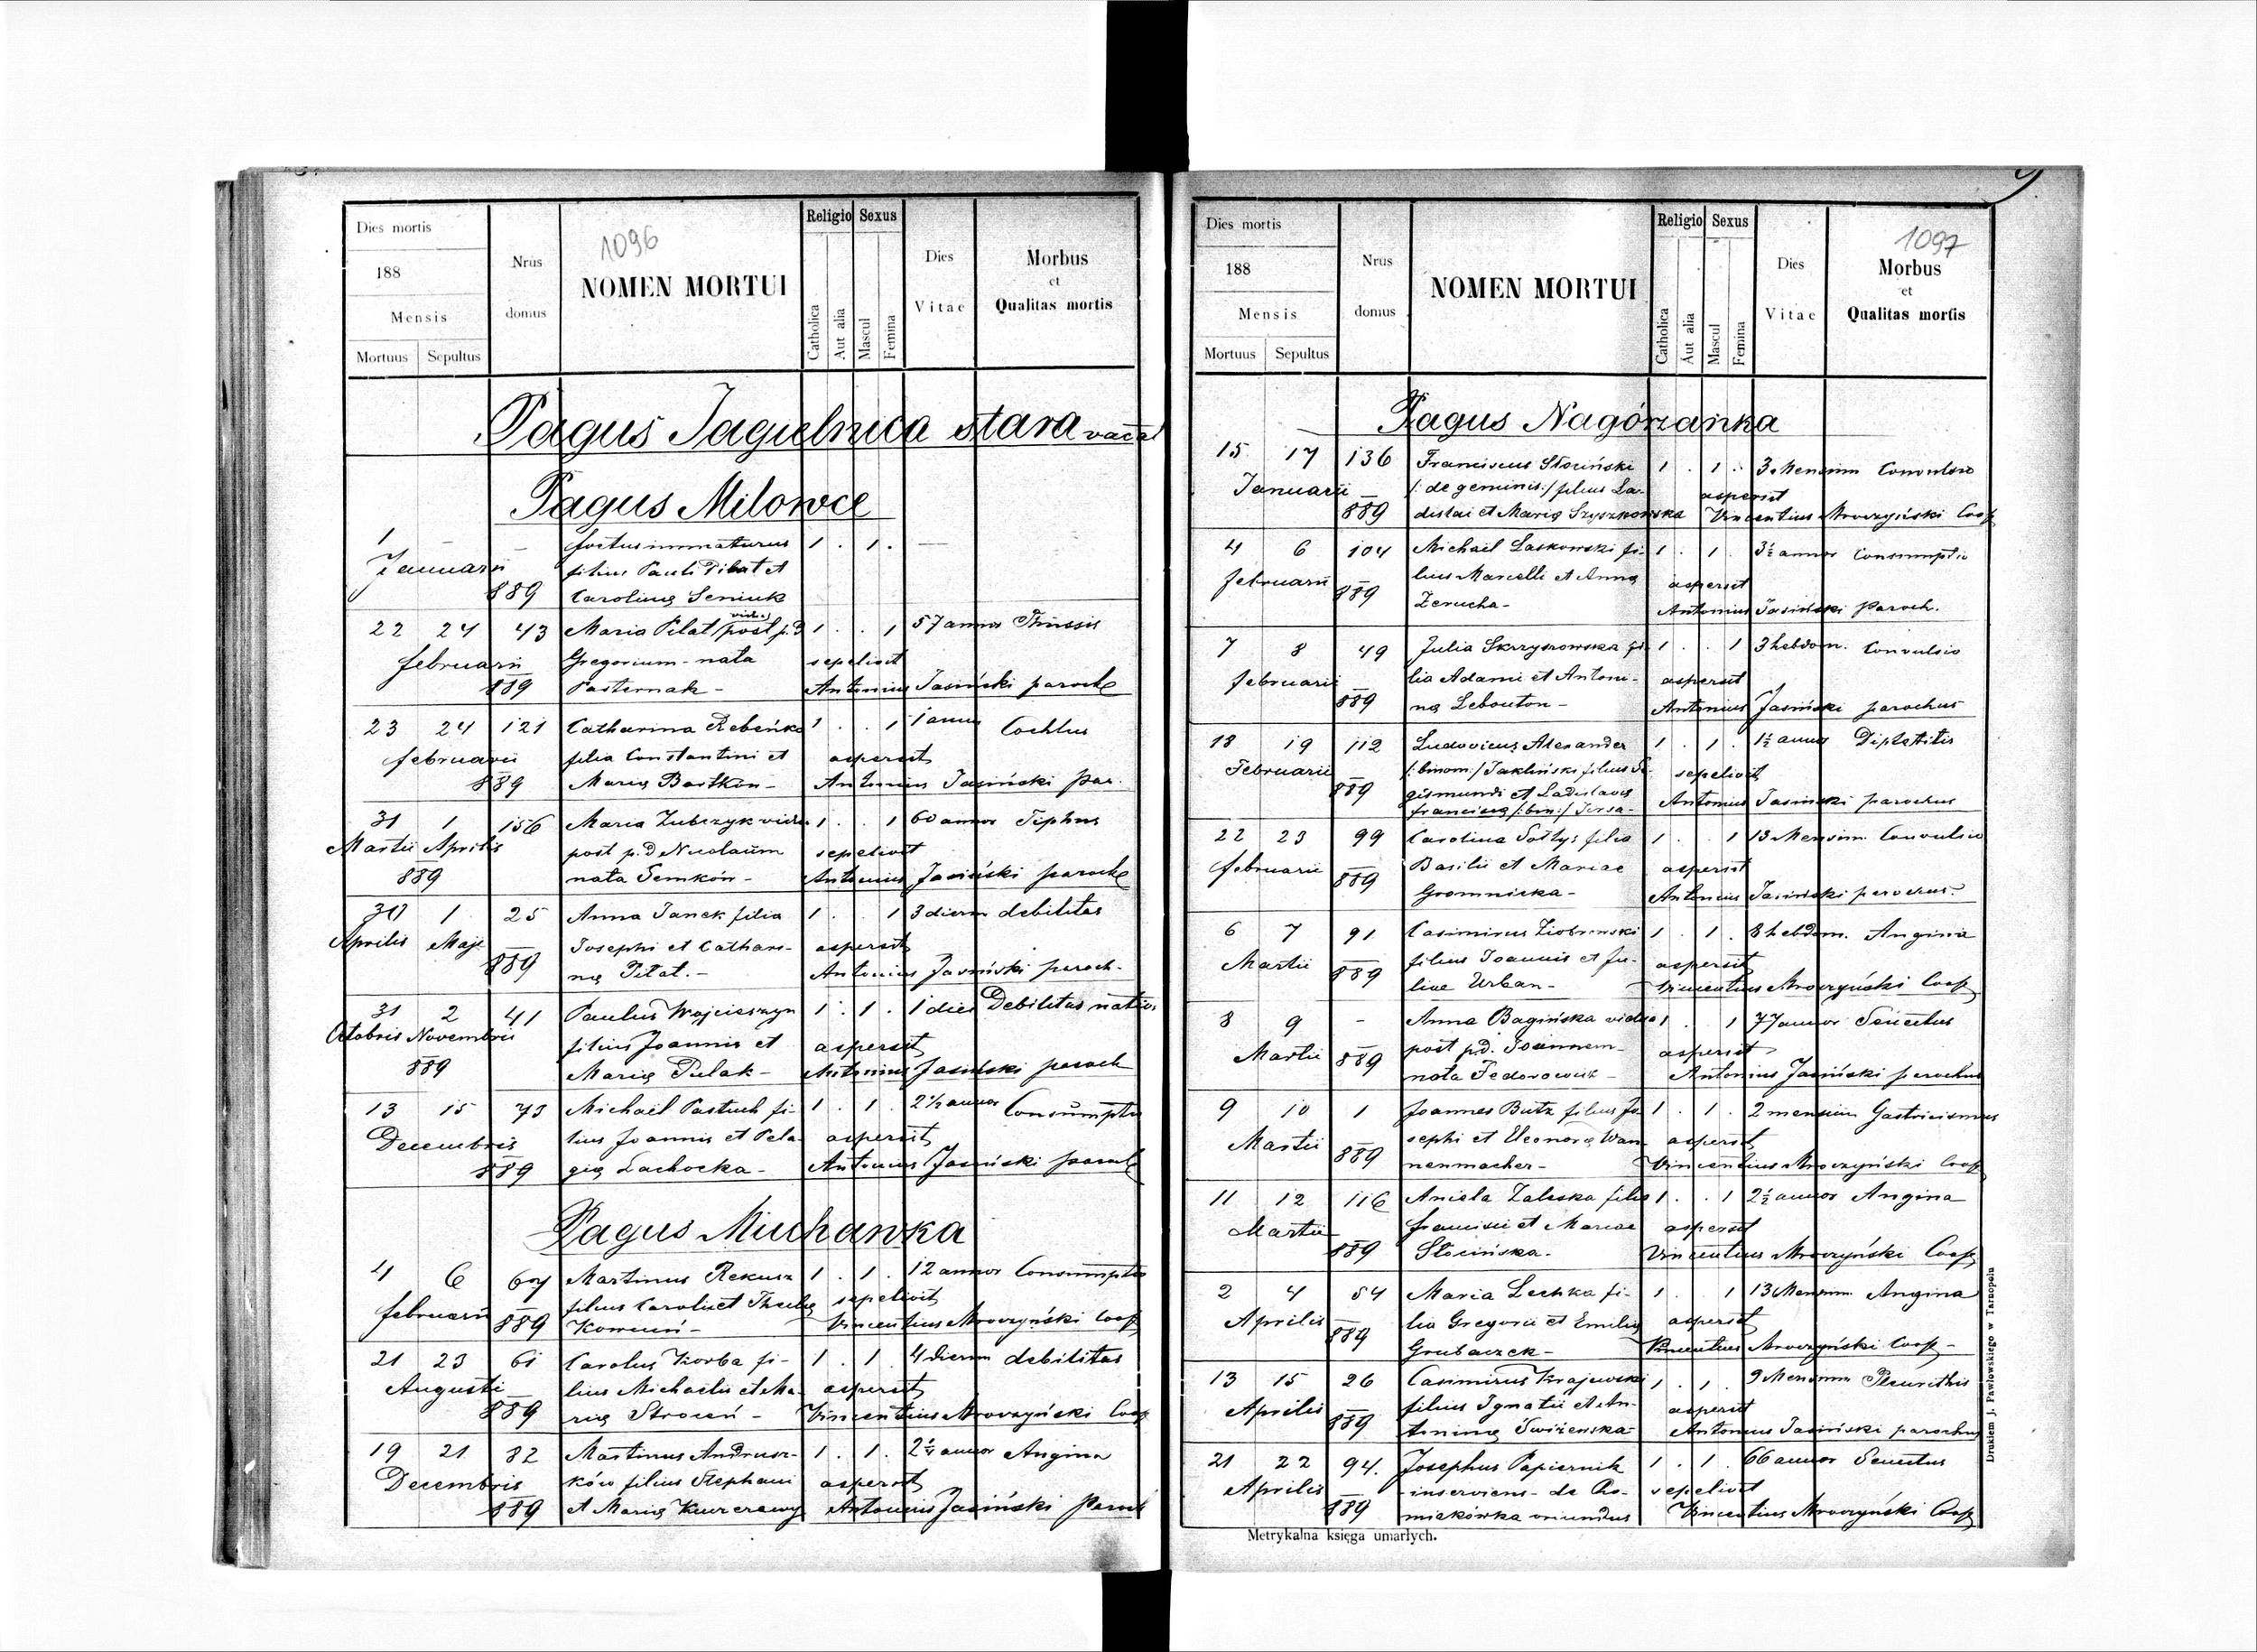 1096
Dies mortis
188
Mensis
Mortuus Sepultus
Nrus domus
NOMEN MORTUI
Religio Sexus
Catholica Aut alia Mascul Femina
Dies Vitae
Morbus et Qualitas mortis
Pagus Jagielnica stara vacat
Pagus Milowce
1 — — foetus immaturus 1 . 1 . —
Januarii filius Pauli Pilat et
889 Carolinę Seniuk
22 24 43 Maria Pilat /vidua/ post p.d 1 . . 1 57 annor Thussis
februarii Gregorium - nata sepelivit
889 Pasternak - Antonius Jasiński paroch
23 24 121 Catharina Rebeńko 1 . . 1 1 anni
februarii filia Constantini et aspersit
889 Marię Bostkon - Antonius Jasiński par.
31 1 156 Maria Zubczyk vidua 1 . . 1 60 annor Tiphus
Martii Aprilis post p.d Nicolaum sepelivit
889 nata Semków - Antonius Jasiński paroch
30 1 25 Anna Janek filia 1 . . 1 3 dierum debilitas
Aprilis Maji Josephi et Cathari- aspersit
889 nę Pilat. - Antonius Jasiński paroch-
31 2 41 Paulus Wojcieszyn 1 . 1 . 1 diei Debilitas nativ.
Octobris Novembris filius Joannis et aspersit
889 Marię Pulak - Antonius Jasiński paroch
13 15 73 Michael Pastuch fi- 1 . 1 . 2 1/2 annor Consumptio
Decembris lius Joannis et Pela- aspersit
889 gię Lachocka - Antonius Jasiński paroch
Pagus Muchawka
4 6 67 Martinus Rekusz 1 . 1 . 12 annor Consumptio
februarii filius Caroli et Theclę sepelivit
889 Korceń - Vincentius Mroczyński Coop
21 23 61 Carolus Korba fi- 1 . 1 . 4 dierum debilitas
Augusti lius Michaelis et Ma- aspersit
889 rię Stroceń - Vincentius Mroczyński Coop
19 21 82 Martinus Andrusz- 1 . 1 . 2 1/4 annor Angina
Decembris ków filius Stephani aspersit
889 et Marię Antonius Jasiński Paroch
9
1097
Dies mortis
188
Mensis
Mortuus Sepultus
Nrus domus
NOMEN MORTUI
Religio Sexus
Catholica Aut alia Mascul Femina
Dies Vitae
Morbus et Qualitas mortis
Pagus Nagórzanka
15 17 136 Franciscus Słociński 1 . 1 . 3 Mensium Convulsio
Januarii /: de geminis :/ filius La- aspersit
889 dislai et Marię Szyszkowska Vincentius Mroczyński Coop
4 6 104 Michael Laskowski fi- 1 . 1 . 3 1/2 annor Consumptio
februarii lius Marcelli et Annę aspersit
889 Zerucha - Antonius Jasiński Paroch.
7 8 49 Julia Skrzyszowska fi- 1 . . 1 3 hebdom. Convulsio
februarii lia Adami et Antoni- aspersit
889 nę Lebouton - Antonius Jasiński parochus
18 19 112 Ludovicus Alexander 1 . 1 . 1 1/2 anni Diphtitis
Februarii /: binom :/ Jakliński filius Si- sepelivit
889 gismundi et Ladislavę Antonius Jasiński parochus
Franciscę /: bin :/ Tersa -
22 23 99 Carolina Sołtys filia 1 . . 1 13 Mensium Convulsio
februarii Basilii et Mariae aspersit
889 Gromnicka - Antonius Jasiński parochus.
6 7 91 Casimirus Ziobrowski 1 . 1 . 8 hebdom. Angina
Martii filius Joannis et Ju- aspersit
889 liae Urban - Vincentius Mroczyński Coop
8 9 - Anna Bagińska vidua 1 . . 1 77 annor Senectus
Martii post p.d. Joannem - aspersit
889 nata Fedorowicz - Antonius Jasiński parochus
9 10 1 Joannes Butz filius Jo 1 . 1 . 2 mensium Gastricismus
Martii sephi et Eleonorę Wan- aspersit
889 nenmacher - Vincentius Mroczyński Coop
11 12 116 Aniela Zaleska filia 1 . . 1 2 1/2 annor Angina
Martii Francisci et Mariae aspersit
889 Słocińska - Vincentius Mroczyński Coop
2 4 54 Maria Lechka fi- 1 . . 1 13 Mensium Angina
Aprilis lia Gregorii et Emilię aspersit
889 Grubaczek - Vincentius Mroczyński Coop -
13 15 26 Casimirus Krajewski 1 . 1 . 9 Mensium Pleurithis
Aprilis filius Ignatii et An- aspersit
889 toninę Swiżewska - Antonius Jasiński parochus
21 22 94. Josephus Papiernik 1 . 1 . 66 annor Senectus
Aprilis inserviens - de Ro- sepelivit
889 miakówka oriundus Vincentius Mroczyński Coop
Metrykalna księga umarłych.
Drukiem J. Pawłowskiego w Tarnopolu